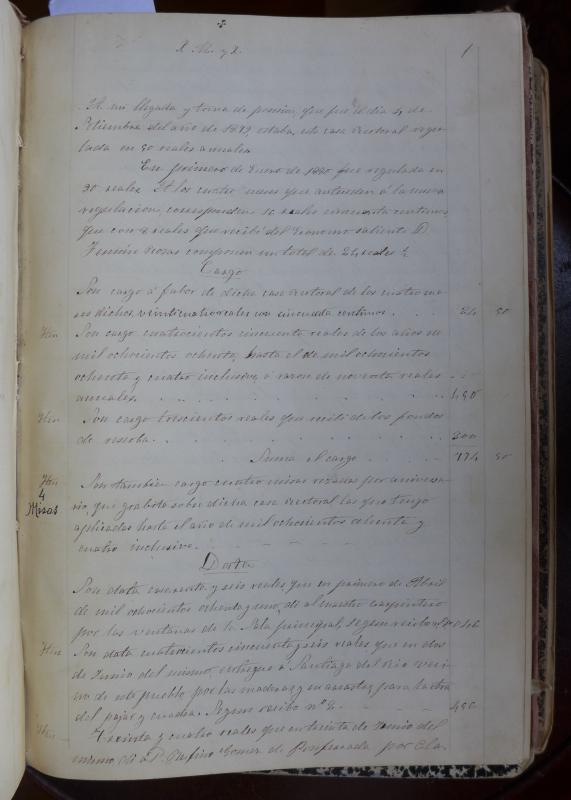 1
A mi llegada y toma de posesion, que fue el dia 4 de
Setiembre del año de 1879 estaba, esta casa rectoral regu-
lada en 50 reales anuales.
En primero de Enero de 1880 fue regulada en
90 reales. A los cuatro meses que anteceden á la nueva
regulacion, corresponden 16 reales cincuenta centimos,
que con 8 reales que recibi del Economo saliente D.
componen un total de 24 reales ½
Cargo
Son cargo á fabor de dicha casa rectoral de los cuatro me-
ses dichos, veinticuatro reales con cincuenta centimos. . . . 24 50
Son cargo cuatrocientos cincuenta reales de los años de
mil ochocientos ochenta, hasta el de mil ochocientos
ochenta y cuatro inclusive, á razon de noventa reales
anuales. . . . . . . . 450
Son cargo trescientos reales que recibi de los fondos
de . . . . . . . . 300
Suma el cargo . . . . 774 50
4
Misas
Son tambien cargo cuatro misas rezadas por aniversa-
rio, que grabita sobre dicha casa rectoral las que tengo
aplicadas hasta el año de mil ochocientos ochenta y
cuatro inclusive.
Data
Son data cuarenta y seis reales que en primero de Abril
de mil ochocientos ochenta y uno, di al maestro carpintero
por las ventanas de la Sala principal, segun recibo nº 046
Son data cuatrocientos cincuenta y seis reales que en dos
de Junio del mismo, entregué á Santiago del Rio veci-
no de este pueblo por las maderas, y su acarreo, para la obra
del pajar y cuadra. Segun recibo nº 456
Treinta y cuatro reales que en treinta de Junio del
mismo, di á D. Rufino Gomez de Ponferrada por cla-